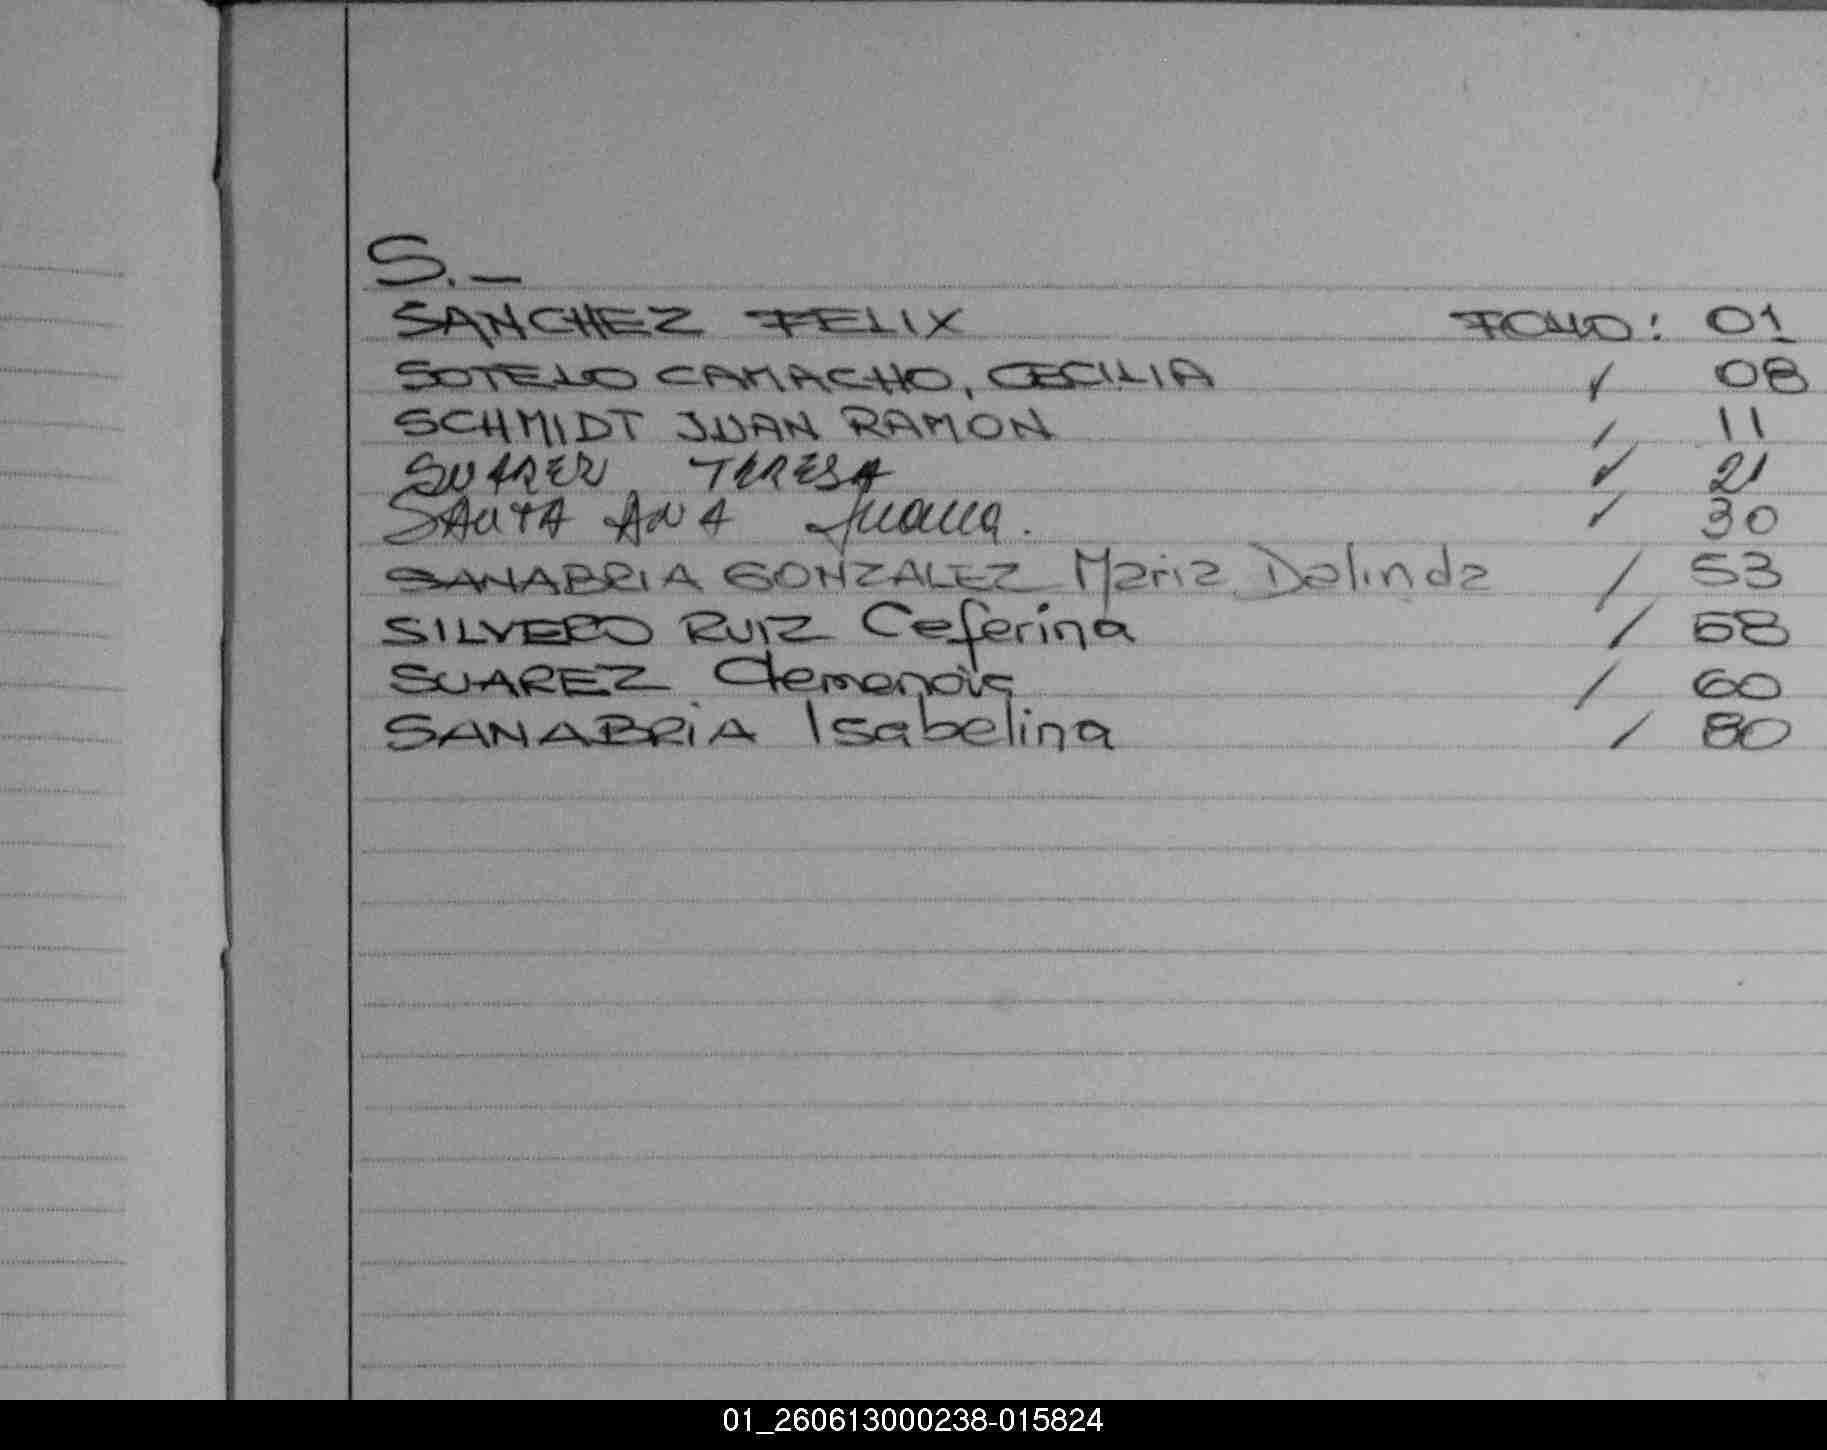 S.-
SANCHEZ FELIX FOLIO: 01
SOTELO CAMACHO, CECILIA ✓ 08
SCHMIDT JUAN RAMON / 11
SUAREZ TERESA ✓ 21
SANTA ANA Juana. ✓ 30
SANABRIA GONZALEZ Maria Dalinda / 53
SILVERO RUIZ Ceferina / 58
SUAREZ Clemencia / 60
SANABRiA Isabelina / 80
01_260613000238-015824